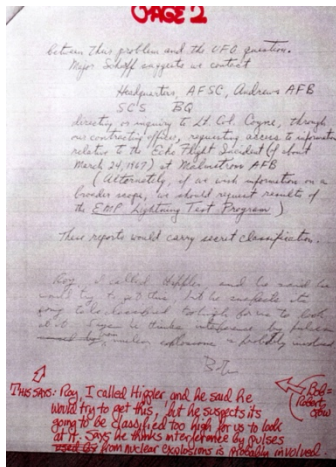 PAGE 2
between this problem and the UFO question.
Major Schaff suggests we contact
Headquarters, AFSC, Andrews AFB
SCS BQ
directing an inquiry to Lt Col. Coyne, through
our contracting office, requesting access to information
relative to the Echo Flight Incident (of about
March 24, 1967) at Malmstrom AFB
(Alternately, if we wish information on a
broader scope, we should request results of
the EMP Lightning Test Program).
These reports would carry secret classification.
Roy, I called Hippler, and he said he
would try to get this, but he suspects it's
going to be classified too high for us to look
at it. Says he thinks interference by pulses
from nuclear explosions is probably involved
Bob
THIS SAYS: Roy, I called Higgler, and he said he
would try to get this, but he suspects its
going to be classified too high for us to look
at it. Says he thinks interference by pulses
from nuclear explosions is probably involved
Bob =
Robert
Low